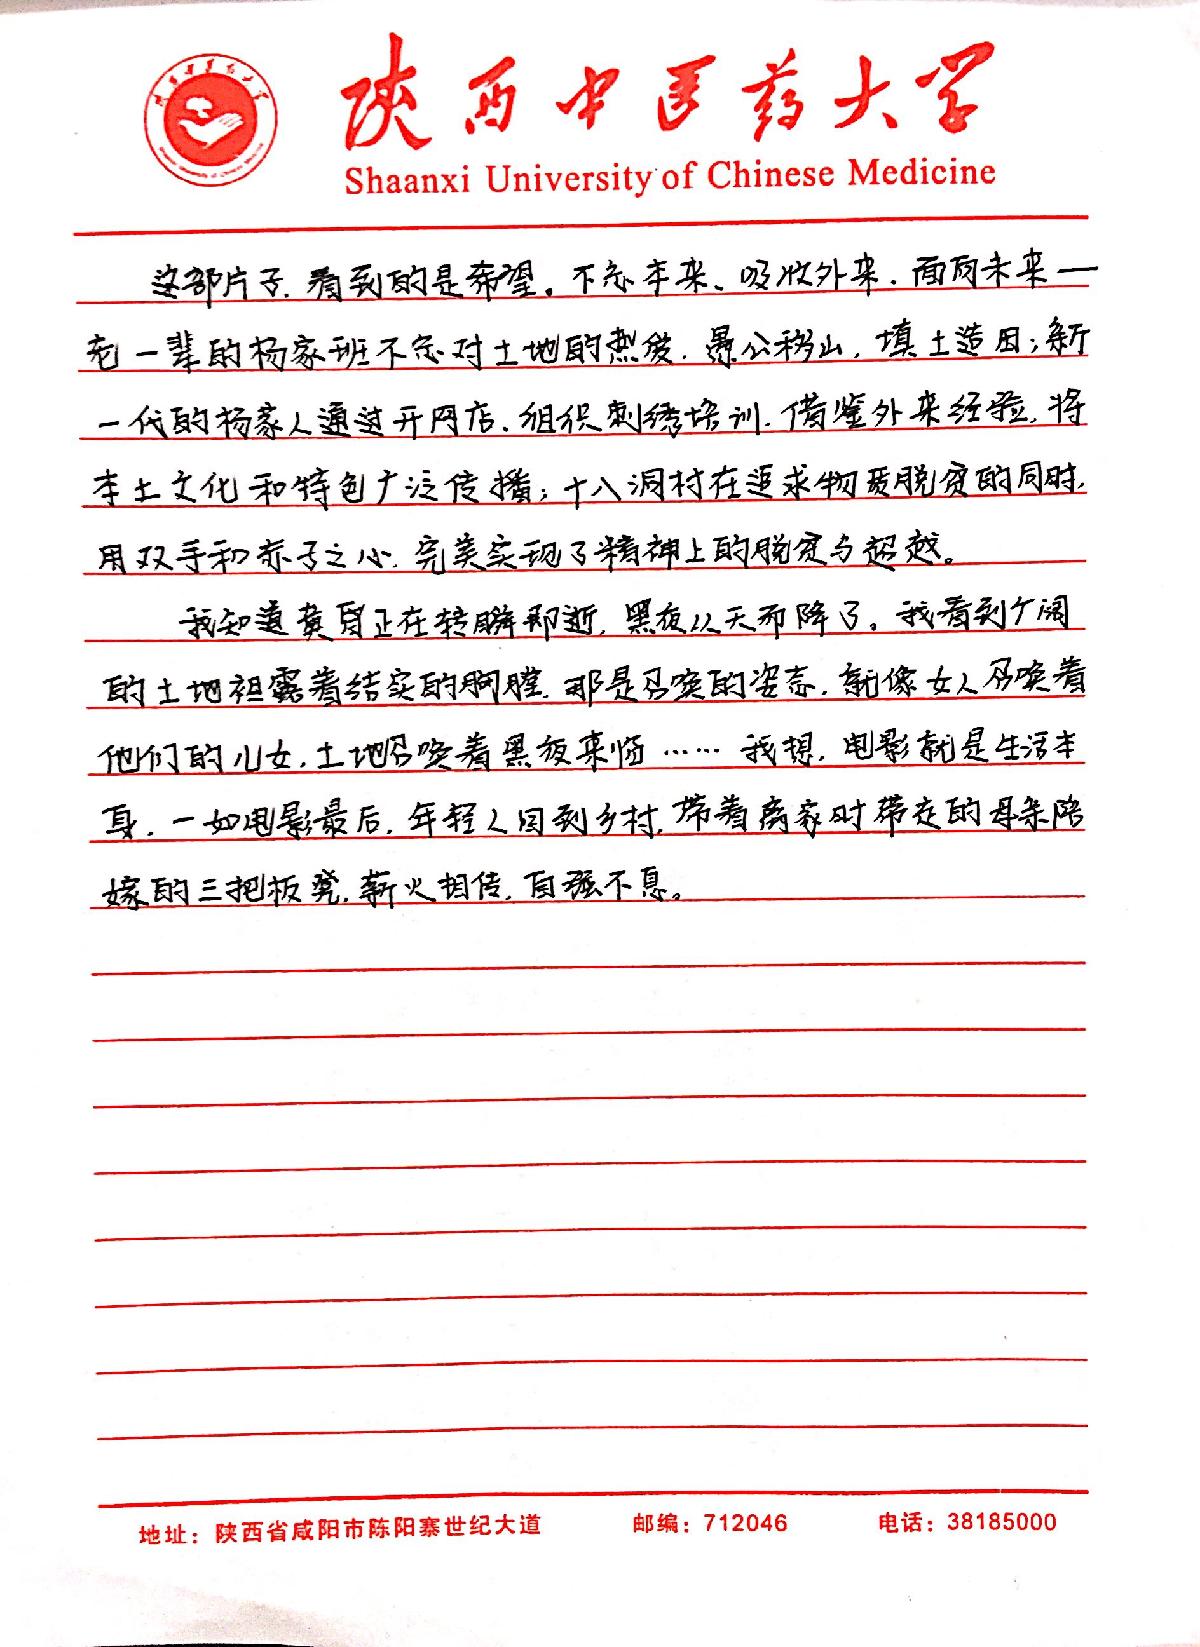 陕西中医药大学
Shaanxi University of Chinese Medicine
这部片子,看到的是希望。不忘本来、吸收外来,面向未来—
老一辈的杨家班不忘对土地的热爱,愚公移山,填土造田;新
一代的杨家人通过开网店,组织刺绣培训,借鉴外来经验,将
本土文化和特色广泛传播;十八洞村在追求物质脱贫的同时,
用双手和赤子之心,完美实现了精神上的脱贫与超越。
我知道黄昏正在转瞬即逝,黑夜从天而降了。我看到广阔
的土地袒露着结实的胸膛,那是召唤的姿态,就像女人召唤着
他们的儿女,土地召唤着黑夜来临……我想,电影就是生活本
身,一如电影最后,年轻人回到乡村,带着离家时带走的母亲陪
嫁的三把板凳,薪火相传,自强不息。
地址:陕西省咸阳市陈阳寨世纪大道 邮编:712046 电话:38185000